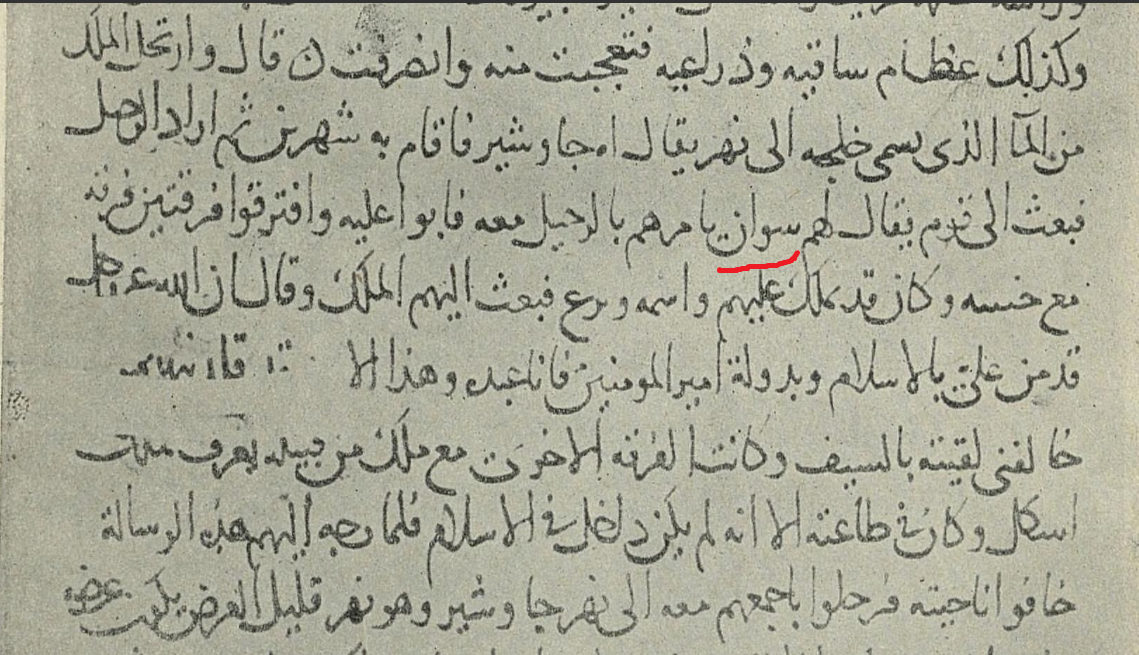 وكذلك عظام ساقيه وذراعيه فتعجبت منه وانصرفت ن قال وارتحل الملك
من المآ الذى يسمى خلجه الى نهر يقال له جاوشير فاقام به شهرين ثم اراد الرحيل
فبعث الى قوم يقال لهم سوان يامرهم بالرحيل معه فابوا عليه وافترقوا فرقتين فرقه
مع ختنه وكان قد تملك عليهم واسمه ويرغ فبعث اليهم الملك وقال ان الله عز وجل
قد من على بالاسلام وبدولة امير المومنين فانا عبده وهذا الا
خالفنى لقيته بالسيف وكانت الفرقه الاخرى مع ملك من قبيله يعرف بملك
اسكل وكان فى طاعته الا انه لم يكن دخل فى الاسلام فلما وجه اليهم هذه الرسالة
خافوا ناحيته فرحلوا باجمعهم معه الى نهر جاوشير وهو نهر قليل العرض يكون عرضه